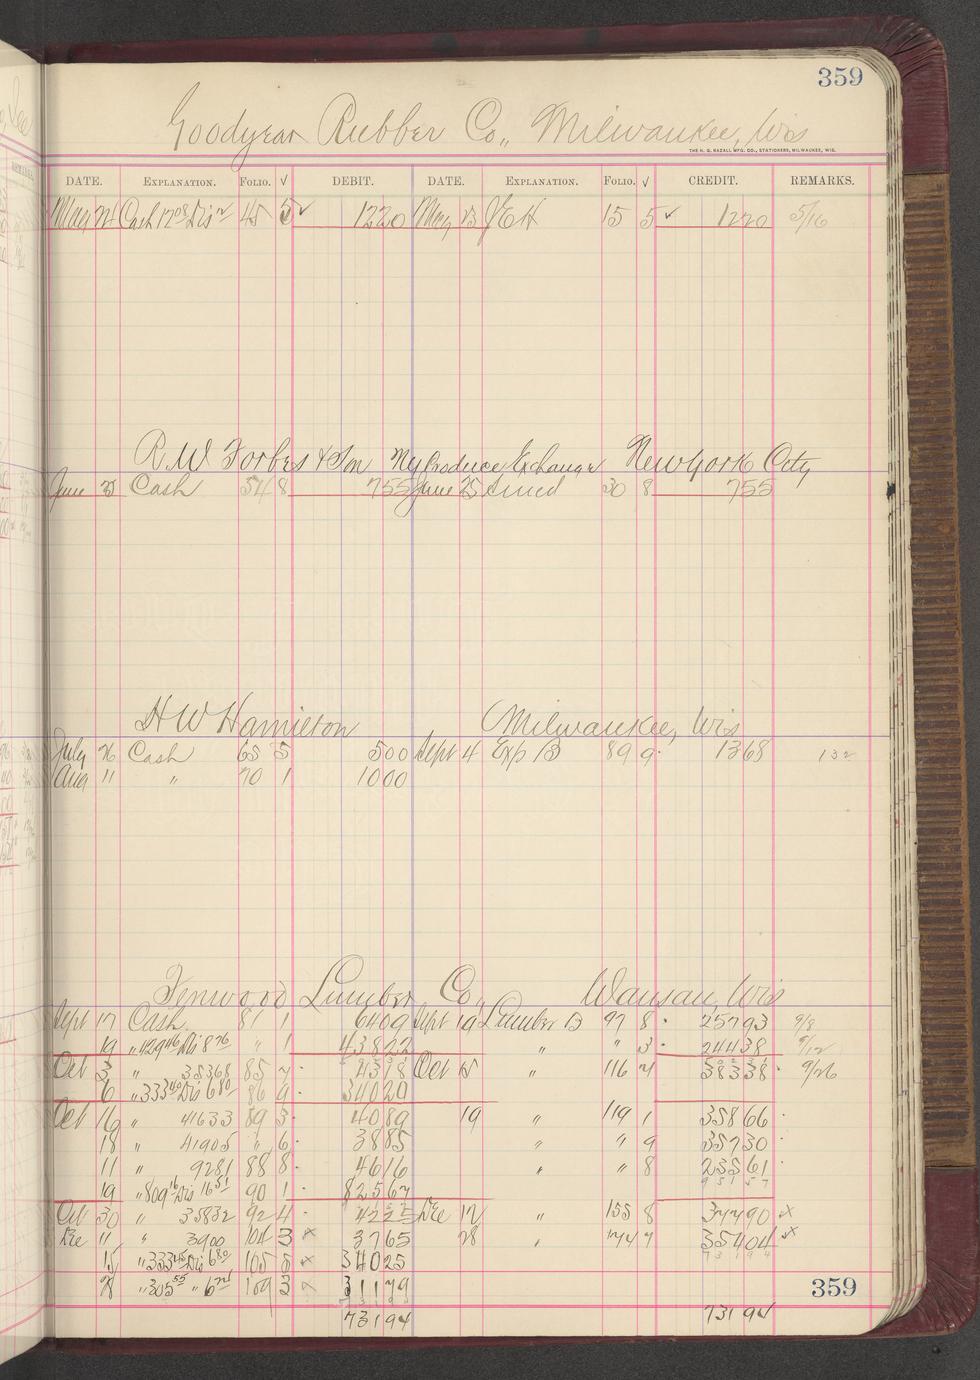 359
Goodyear Rubber Co., Milwaukee, Wis
THE H. G. RAZALL MFG. CO., STATIONERS, MILWAUKEE, WIS.
DATE. EXPLANATION. FOLIO. √ DEBIT. DATE. EXPLANATION. FOLIO. √ CREDIT. REMARKS.
May Cash 45 5 ✓ 1220 May 15 5 ✓ 1220 5/16
R.W. Forbes & Son NY Produce Exchange New York City
June 25 Cash 54 8 755 June 25 30 8 755
H W Hamilton Milwaukee, Wis
July 26 Cash 65 5 500 Sept 4 Exp 13 89 9 1368 132
Aug 11 " 70 1 1000
Fenwood Lumber Co., Wausau, Wis
Sept 17 Cash 81 1 6409 Sept 19 Lumber 13 97 8 25793 9/8
19 " 429 46 Dis 8 76 " 1 43822 " " 3 24438 9/12
Oct 3 " 35368 85 7 4318 Oct 15 " 116 7 38338 9/26
6 " 333 40 Dis 6 80 86 9 34020
Oct 16 " 41633 89 3 4089 19 " 119 1 35866
18 " 41905 " 6 3885 " " 9 35730
11 " 9281 88 8 4616 " " 8 23561
19 " 809 16 Dis 16 51 90 1 82567
Oct 30 " 35832 92 4 4225 Dec 12 " 155 8 37790 x
Dec 11 " 3900 104 3 x 3765 28 " 174 7 35404 x
15 " 333 45 Dis 6 80 105 5 x 34025
" 305 55 " 6 24 109 3 x 31179
359
73194 73194